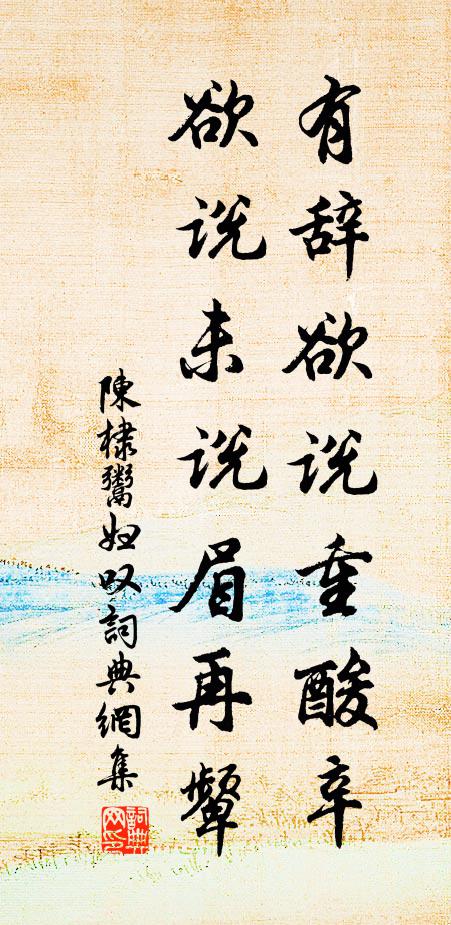 有辞欲说重酸辛
欲说未说眉再颦
陳棣鬻妇叹詞典網集
詞典网印